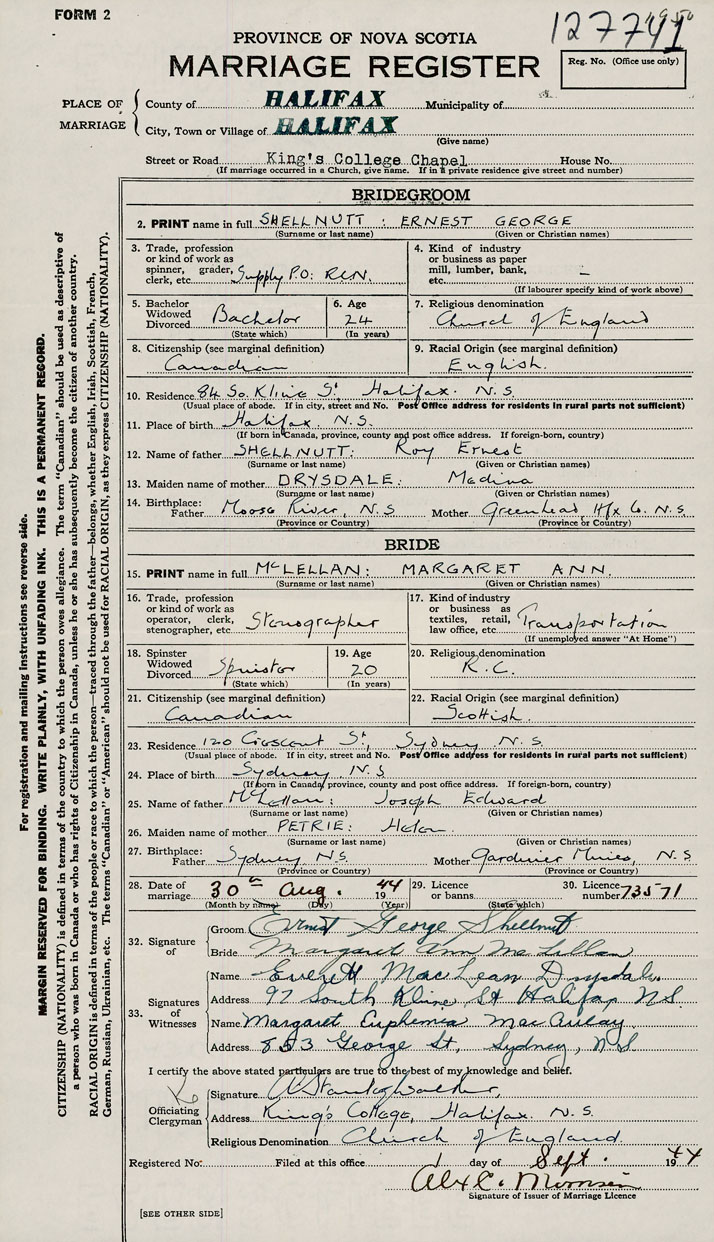 FORM 2
PROVINCE OF NOVA SCOTIA
MARRIAGE REGISTER
Reg. No. (Office use only)
PLACE OF MARRIAGE
County of HALIFAX Municipality of
City, Town or Village of HALIFAX
(Give name)
Street or Road King's College Chapel House No.
(If marriage occurred in a Church, give name. If in a private residence give street and number)
BRIDEGROOM
2. PRINT name in full SHELLNUTT : ERNEST GEORGE
(Surname or last name) (Given or Christian names)
3. Trade, profession or kind of work as spinner, grader, clerk, etc. Supply P.O: RCN.
4. Kind of industry or business as paper mill, lumber, bank, etc. –
(If labourer specify kind of work above)
5. Bachelor Widowed Divorced Bachelor (State which)
6. Age 24 (In years)
7. Religious denomination Church of England
8. Citizenship (see marginal definition) Canadian
9. Racial Origin (see marginal definition) English.
10. Residence 84 So. Kline St, Halifax. N.S.
(Usual place of abode. If in city, street and No. Post Office address for residents in rural parts not sufficient)
11. Place of birth Halifax, N.S.
(If born in Canada, province, county and post office address. If foreign-born, country)
12. Name of father SHELLNUTT: Roy Ernest
(Surname or last name) (Given or Christian names)
13. Maiden name of mother DRYSDALE: Medina
(Surname or last name) (Given or Christian names)
14. Birthplace: Father Moose River, N.S Mother Greenhead, Hfx Co. N.S.
(Province or Country) (Province or Country)
BRIDE
15. PRINT name in full McLELLAN: MARGARET ANN.
(Surname or last name) (Given or Christian names)
16. Trade, profession or kind of work as operator, clerk, stenographer, etc. Stenographer
17. Kind of industry or business as textiles, retail, law office, etc. Transportation
(If unemployed answer "At Home")
18. Spinster Widowed Divorced Spinster (State which)
19. Age 20 (In years)
20. Religious denomination R.C.
21. Citizenship (see marginal definition) Canadian
22. Racial Origin (see marginal definition) Scottish.
23. Residence 120 Crescent St, Sydney N.S.
(Usual place of abode. If in city, street and No. Post Office address for residents in rural parts not sufficient)
24. Place of birth Sydney, N.S
(If born in Canada, province, county and post office address. If foreign-born, country)
25. Name of father McLellan: Joseph Edward
(Surname or last name) (Given or Christian names)
26. Maiden name of mother PETRIE: Helen.
(Surname or last name) (Given or Christian names)
27. Birthplace: Father Sydney, N.S. Mother Gardiner Mines, N.S
(Province or Country) (Province or Country)
28. Date of marriage 30th Aug. 1944
(Month by name) (Day) (Year)
29. Licence or banns (State which)
30. Licence number 73571
32. Signature of
Groom Ernest George Shellnutt
Bride Margaret Ann McLellan
33. Signatures of Witnesses
Name Everett MacLean Drysdale.
Address 97 South Kline St Halifax N.S.
Name Margaret Euphemia MacAulay
Address 853 George St, Sydney, N.S.
I certify the above stated particulars are true to the best of my knowledge and belief.
Officiating Clergyman
Signature
Address King's College, Halifax. N.S.
Religious Denomination Church of England.
Registered No. Filed at this office 1 day of Sept. 1944
Signature of Issuer of Marriage Licence
[SEE OTHER SIDE]
For registration and mailing instructions see reverse side.
MARGIN RESERVED FOR BINDING. WRITE PLAINLY, WITH UNFADING INK. THIS IS A PERMANENT RECORD.
CITIZENSHIP (NATIONALITY) is defined in terms of the country to which the person owes allegiance. The term "Canadian" should be used as descriptive of
a person who was born in Canada or who has rights of Citizenship in Canada, unless he or she has subsequently become the citizen of another country.
RACIAL ORIGIN is defined in terms of the people or race to which the person—traced through the father—belongs, whether English, Irish, Scottish, French,
German, Russian, Ukrainian, etc. The terms "Canadian" or "American" should not be used for RACIAL ORIGIN, as they express CITIZENSHIP (NATIONALITY).